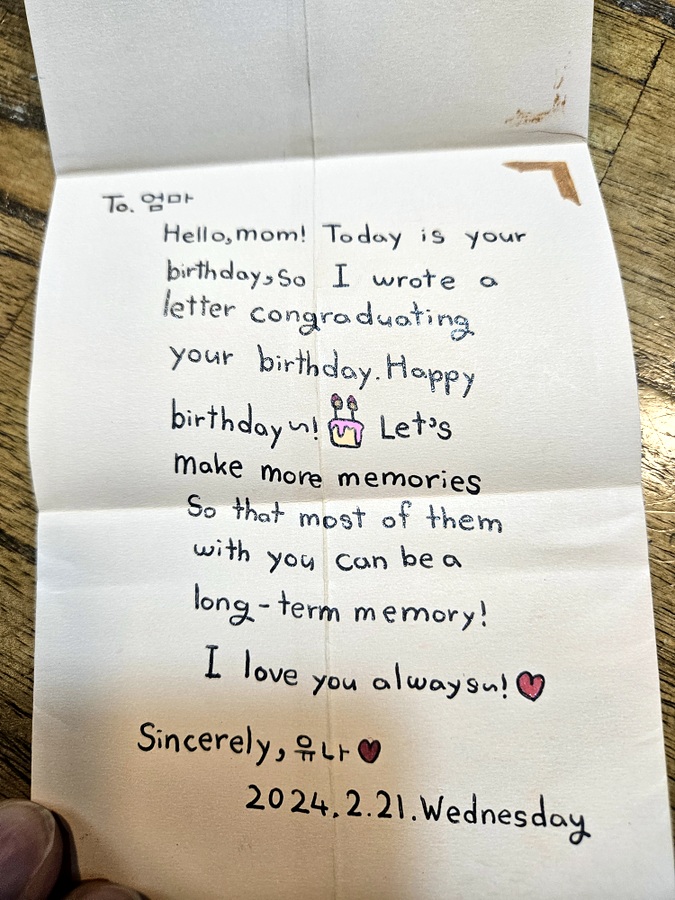 To. 엄마
Hello, mom! Today is your
birthday, So I wrote a
letter congraduating
your birthday. Happy
birthday~! Let's
make more memories
So that most of them
with you can be a
long-term memory!
I love you always~!
Sincerely, 유나
2024. 2. 21. Wednesday